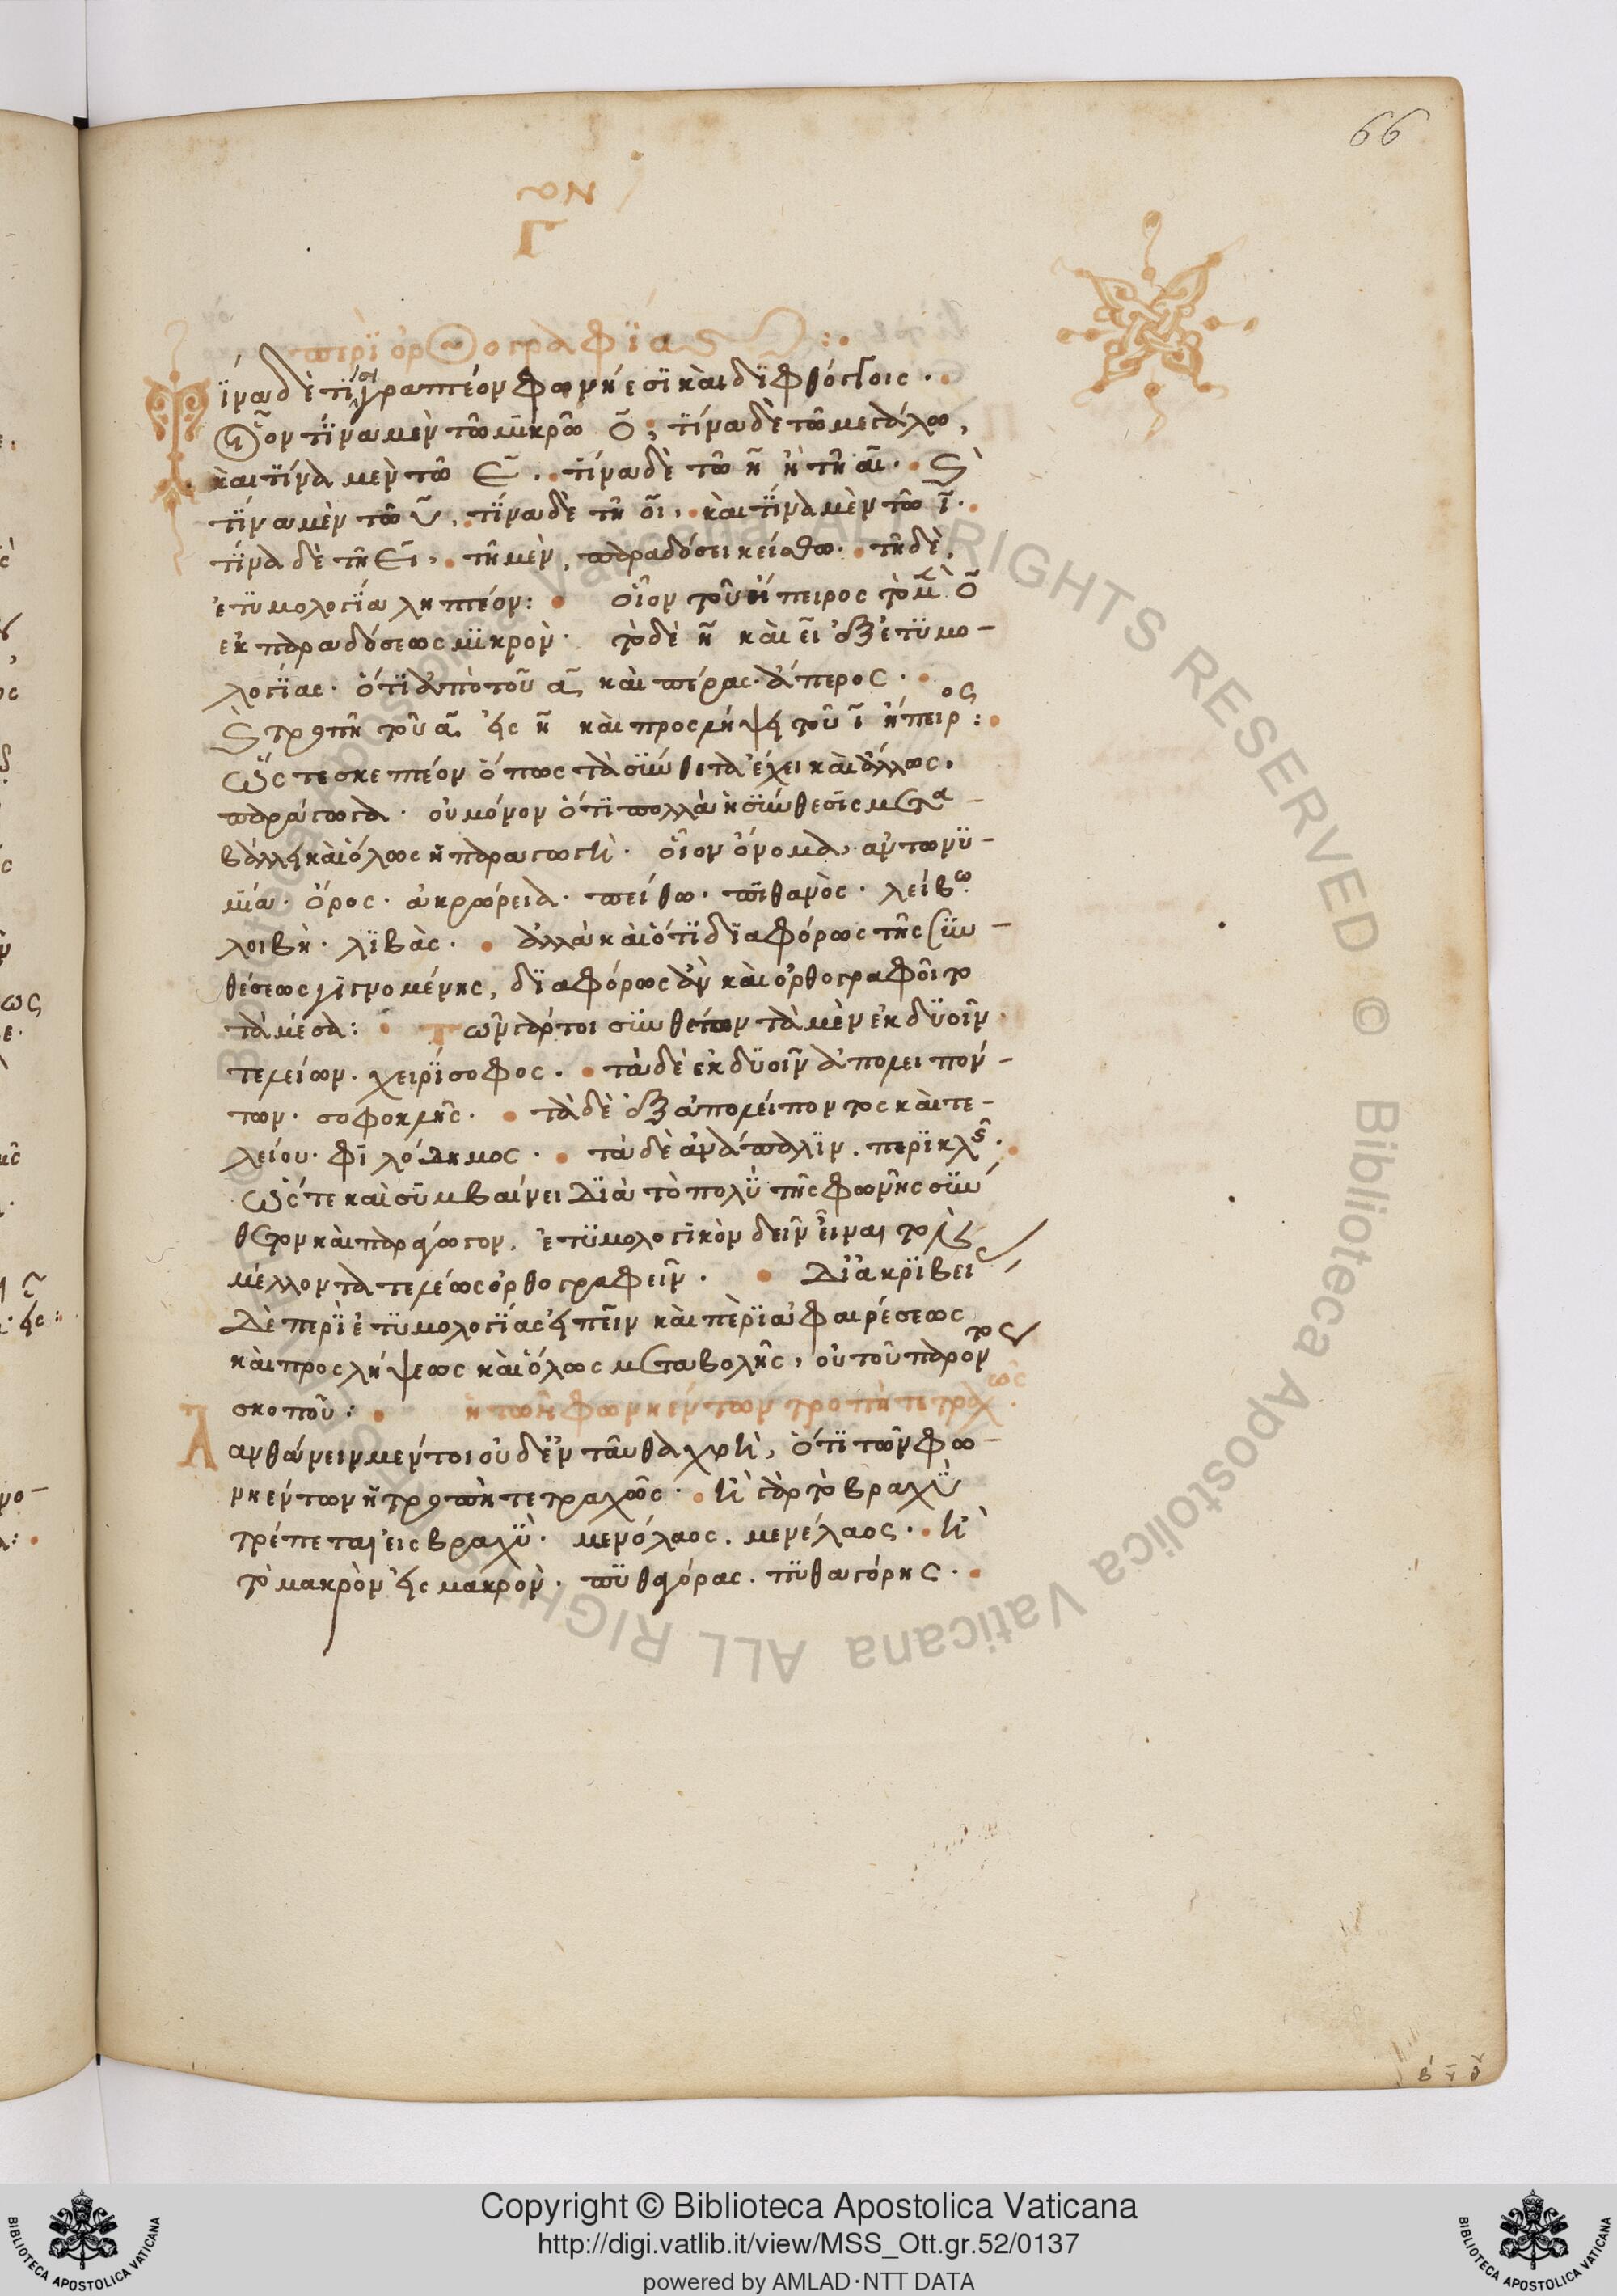 66
ον
Γ
περὶ ὀρθογραφίας :·
ΐνα δὲ τίσι γραπτέον φωνήεσϊ καὶ δϊφθόγγοις ·
οἷον τΐνα μὲν τῶ μϊκρῶ ο̄, τΐνα δὲ τῶ μεγάλω,
καὶ τΐνα μεν τῶ ε̄ · τίνα δὲ τῶ η̄ ἢ τῆ αῑ · καὶ
τΐνα μὲν τῶ ῡ, τΐνα δὲ τῆ οῑ, καὶ τΐνα μὲν τῶ ῑ ·
τΐνα δὲ τῆ ει, τῆ μὲν, παραδόσει κείσθω · τῆ δὲ,
ἐτϋμολογΐα ληπτέον : οἷον τοῦ ἤπειρος τὸ μὲν ο̄
ἐκ παραδόσεως μϊκρὸν · τὸ δὲ η̄ καὶ ει ἐξ ἐτϋμο-
λογΐας · ὅτϊ ἀπὸ τοῦ α καὶ πέρας · ἄπερος ·
καὶ τροπῆ τοῦ α εἰς η καὶ προσλήψει τοῦ ι ἤπειρος :
ὥστε σκεπτέον ὅπως τὰ σϋνθετα ἔχει καὶ ἄλλως ·
παράγωγα · οὐ μόνον ὅτϊ πολλὰ ἡ σϋνθεσϊς μετα-
βάλλει καὶ ὅλως ἡ παραγωγὴ · οἷον ὄνομα, ἀντωνϋ-
μΐα · ὄρος · ἀκρώρεια · πείθω · πϊθανὸς · λείβω
λοιβὴ · λϊβὰς · ἀλλὰ καὶ ὅτϊ δϊαφόρως τῆς σϋν-
θέσεως γϊγνομένης, δϊαφόρως ἂν καὶ ὀρθογραφοῖτο
τὰ μέσα : τῶν γάρτοι σϋνθέτων τὰ μὲν ἐκ δϋοῖν
τελείων · χειρΐσοφος · τὰ δὲ ἐκ δϋοῖν ἀπολειπόν-
των · σοφοκλῆς · τὰ δὲ ἐξ ἀπολείποντος καὶ τε-
λείου · φϊλόδημος · τὰ δὲ ἀνάπαλϊν · περϊκλῆς ·
ὥστε καὶ σϋμβαίνει δϊὰ τὸ πολϋ τῆς φωνῆς σϋν
θετον καὶ παράγωγον, ἐτϋμολογϊκὸν δεῖν εἶναι τοὺς
μέλλοντα τελέως ὀρθογραφεῖν · Δϊακρϊβεῖ
δὲ περὶ ἐτϋμολογΐας εἰπεῖν καὶ περὶ ἀφαιρέσεως
καὶ προσλήψεως καὶ ὅλως μεταβολῆς, οὐ τοῦ παρόντος
σκοποῦ : ἡ τῶν φωνηέντων τροπὴ τετραχῶς ·
Λανθάνειν μέντοι οὐδ' ἐνταῦθα χρὴ, ὅτϊ τῶν φω-
νηέντων ἡ τροπὴ τετραχῶς · ἢ γὰρ τὸ βραχὺ
τρέπεται εἰς βραχὺ · μενόλαος · μενέλαος · ἢ
τὸ μακρὸν εἰς μακρὸν · πϋθαγόρας · πϋθαγόρης ·
Copyright © Biblioteca Apostolica Vaticana
http://digi.vatlib.it/view/MSS_Ott.gr.52/0137
powered by AMLAD·NTT DATA